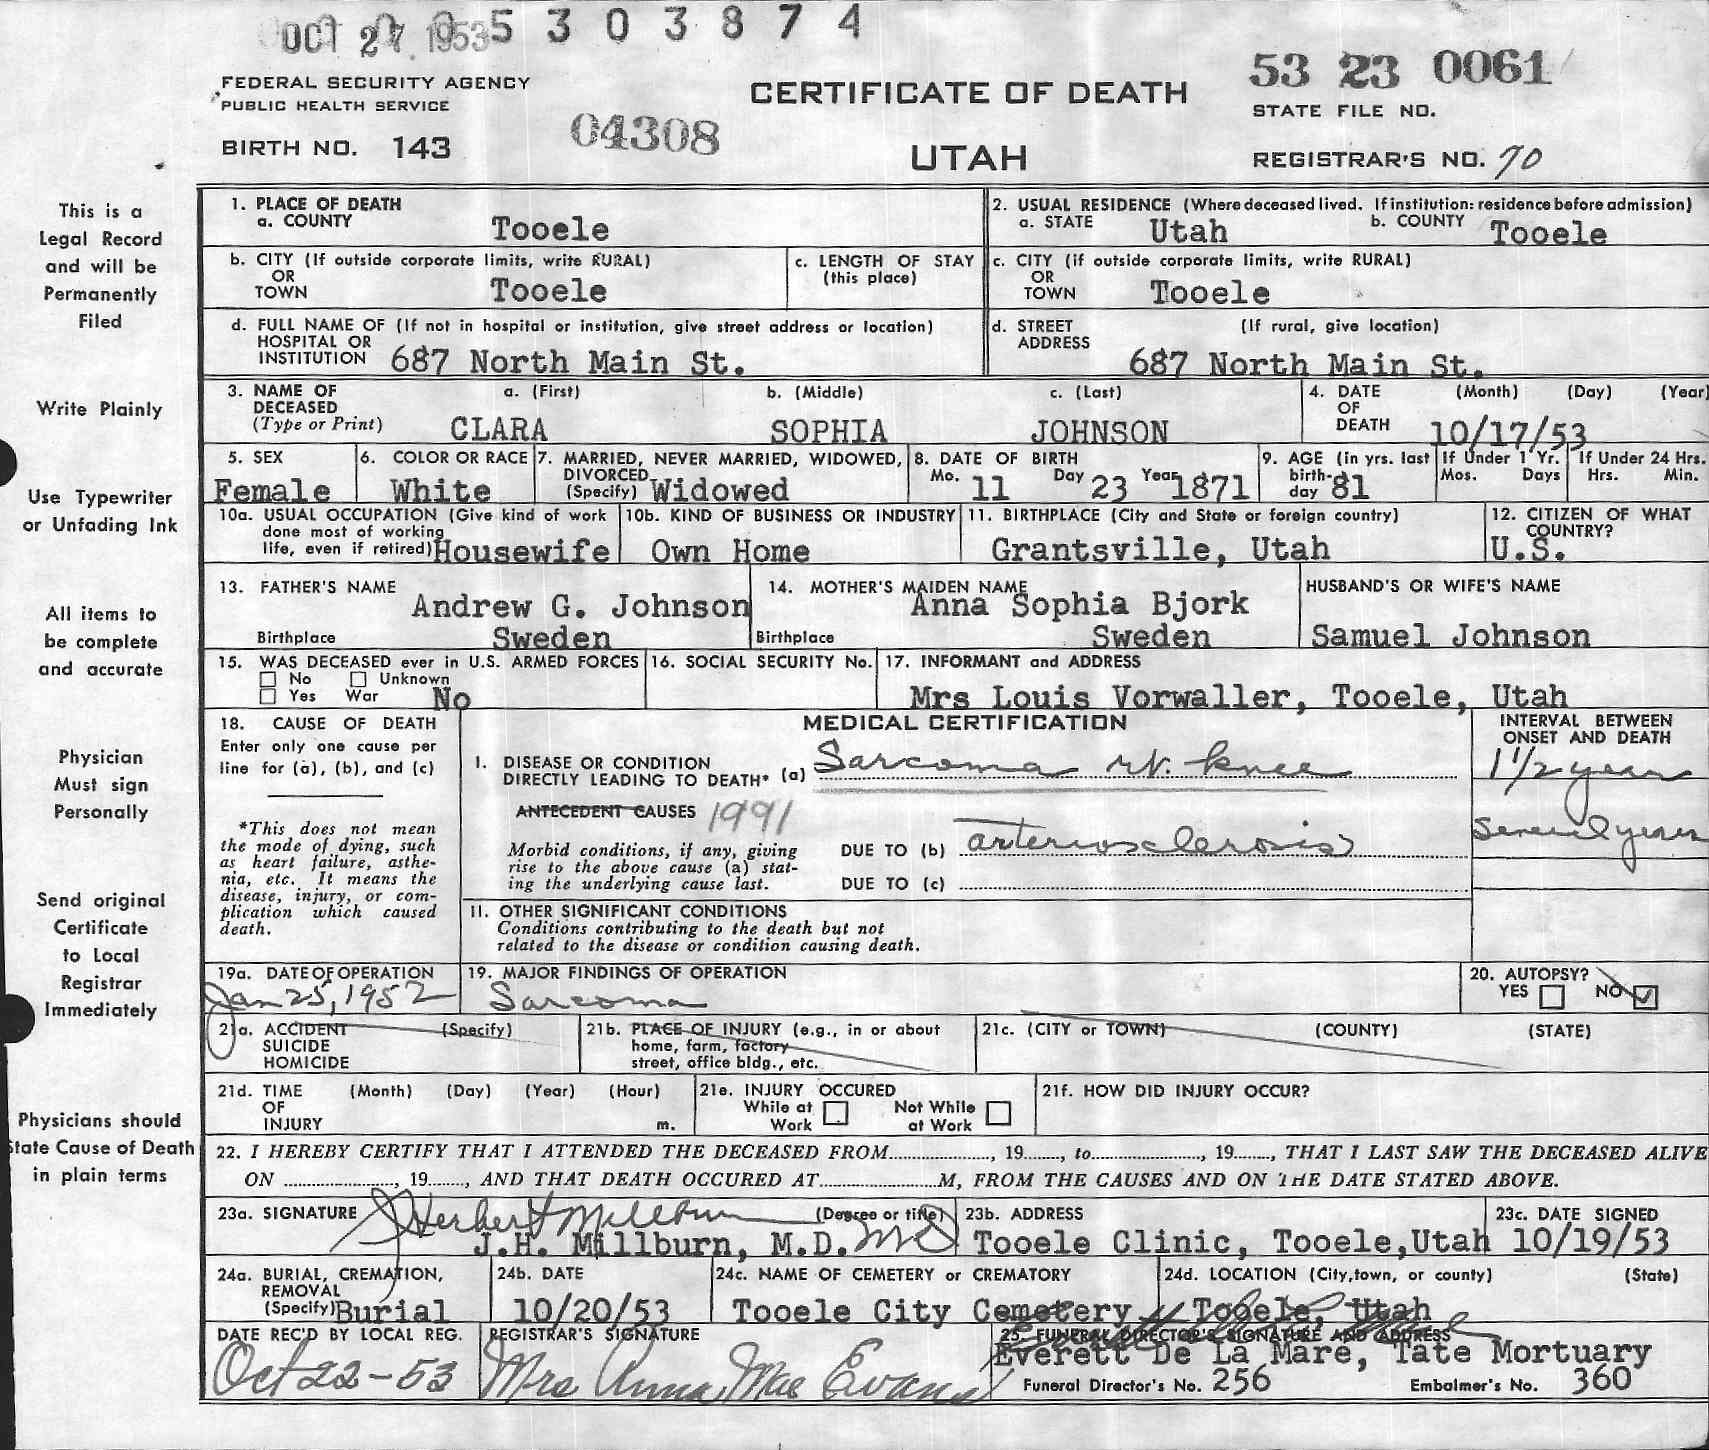 OCT 27 1953 5 3 0 3 8 7 4
FEDERAL SECURITY AGENCY
PUBLIC HEALTH SERVICE
BIRTH NO. 143
04308
CERTIFICATE OF DEATH
UTAH
53 23 0061
STATE FILE NO.
REGISTRAR'S NO. 70
This is a
Legal Record
and will be
Permanently
Filed
Write Plainly
Use Typewriter
or Unfading Ink
All items to
be complete
and accurate
Physician
Must sign
Personally
Send original
Certificate
to Local
Registrar
Immediately
Physicians should
State Cause of Death
in plain terms
1. PLACE OF DEATH
a. COUNTY Tooele
2. USUAL RESIDENCE (Where deceased lived. If institution: residence before admission)
a. STATE Utah b. COUNTY Tooele
b. CITY (If outside corporate limits, write RURAL)
OR
TOWN Tooele
c. LENGTH OF STAY
(this place)
c. CITY (if outside corporate limits, write RURAL)
OR
TOWN Tooele
d. FULL NAME OF (If not in hospital or institution, give street address or location)
HOSPITAL OR
INSTITUTION 687 North Main St.
d. STREET (If rural, give location)
ADDRESS
687 North Main St.
3. NAME OF a. (First) b. (Middle) c. (Last)
DECEASED
(Type or Print) CLARA SOPHIA JOHNSON
4. DATE (Month) (Day) (Year)
OF
DEATH 10/17/53
5. SEX
Female
6. COLOR OR RACE
White
7. MARRIED, NEVER MARRIED, WIDOWED,
DIVORCED
(Specify) Widowed
8. DATE OF BIRTH
Mo. 11 Day 23 Year 1871
9. AGE (in yrs. last
birth-
day 81
If Under 1 Yr.
Mos. Days
If Under 24 Hrs.
Hrs. Min.
10a. USUAL OCCUPATION (Give kind of work
done most of working
life, even if retired) Housewife
10b. KIND OF BUSINESS OR INDUSTRY
Own Home
11. BIRTHPLACE (City and State or foreign country)
Grantsville, Utah
12. CITIZEN OF WHAT
COUNTRY?
U.S.
13. FATHER'S NAME
Andrew G. Johnson
Birthplace Sweden
14. MOTHER'S MAIDEN NAME
Anna Sophia Bjork
Birthplace Sweden
HUSBAND'S OR WIFE'S NAME
Samuel Johnson
15. WAS DECEASED ever in U.S. ARMED FORCES
No Unknown
Yes War No
16. SOCIAL SECURITY No.
17. INFORMANT and ADDRESS
Mrs Louis Vorwaller, Tooele, Utah
18. CAUSE OF DEATH
Enter only one cause per
line for (a), (b), and (c)
*This does not mean
the mode of dying, such
as heart failure, asthe-
nia, etc. It means the
disease, injury, or com-
plication which caused
death.
MEDICAL CERTIFICATION
INTERVAL BETWEEN
ONSET AND DEATH
I. DISEASE OR CONDITION
DIRECTLY LEADING TO DEATH* (a) Sarcoma rt. knee 1 1/2 years
ANTECEDENT CAUSES 1991
Morbid conditions, if any, giving
rise to the above cause (a) stat-
ing the underlying cause last.
DUE TO (b) arteriosclerosis Several years
DUE TO (c)
II. OTHER SIGNIFICANT CONDITIONS
Conditions contributing to the death but not
related to the disease or condition causing death.
19a. DATE OF OPERATION
Jan 25, 1952
19. MAJOR FINDINGS OF OPERATION
Sarcoma
20. AUTOPSY?
YES NO
21a. ACCIDENT (Specify)
SUICIDE
HOMICIDE
21b. PLACE OF INJURY (e.g., in or about
home, farm, factory
street, office bldg., etc.
21c. (CITY or TOWN) (COUNTY) (STATE)
21d. TIME (Month) (Day) (Year) (Hour)
OF
INJURY m.
21e. INJURY OCCURED
While at Not While
Work at Work
21f. HOW DID INJURY OCCUR?
22. I HEREBY CERTIFY THAT I ATTENDED THE DECEASED FROM................., 19......, to...................., 19......, THAT I LAST SAW THE DECEASED ALIVE
ON ..................., 19......, AND THAT DEATH OCCURED AT....................M, FROM THE CAUSES AND ON THE DATE STATED ABOVE.
23a. SIGNATURE J Herbert Millburn (Degree or title)
J.H. Millburn, M.D. MD
23b. ADDRESS
Tooele Clinic, Tooele,Utah
23c. DATE SIGNED
10/19/53
24a. BURIAL, CREMATION,
REMOVAL
(Specify) Burial
24b. DATE
10/20/53
24c. NAME OF CEMETERY or CREMATORY
Tooele City Cemetery
24d. LOCATION (City,town, or county) (State)
Tooele, Utah
DATE REC'D BY LOCAL REG.
Oct 22-53
REGISTRAR'S SIGNATURE
Mrs Anna Mae Evans
25. FUNERAL DIRECTOR'S SIGNATURE AND ADDRESS
Everett De La Mare, Tate Mortuary
Funeral Director's No. 256 Embalmer's No. 360